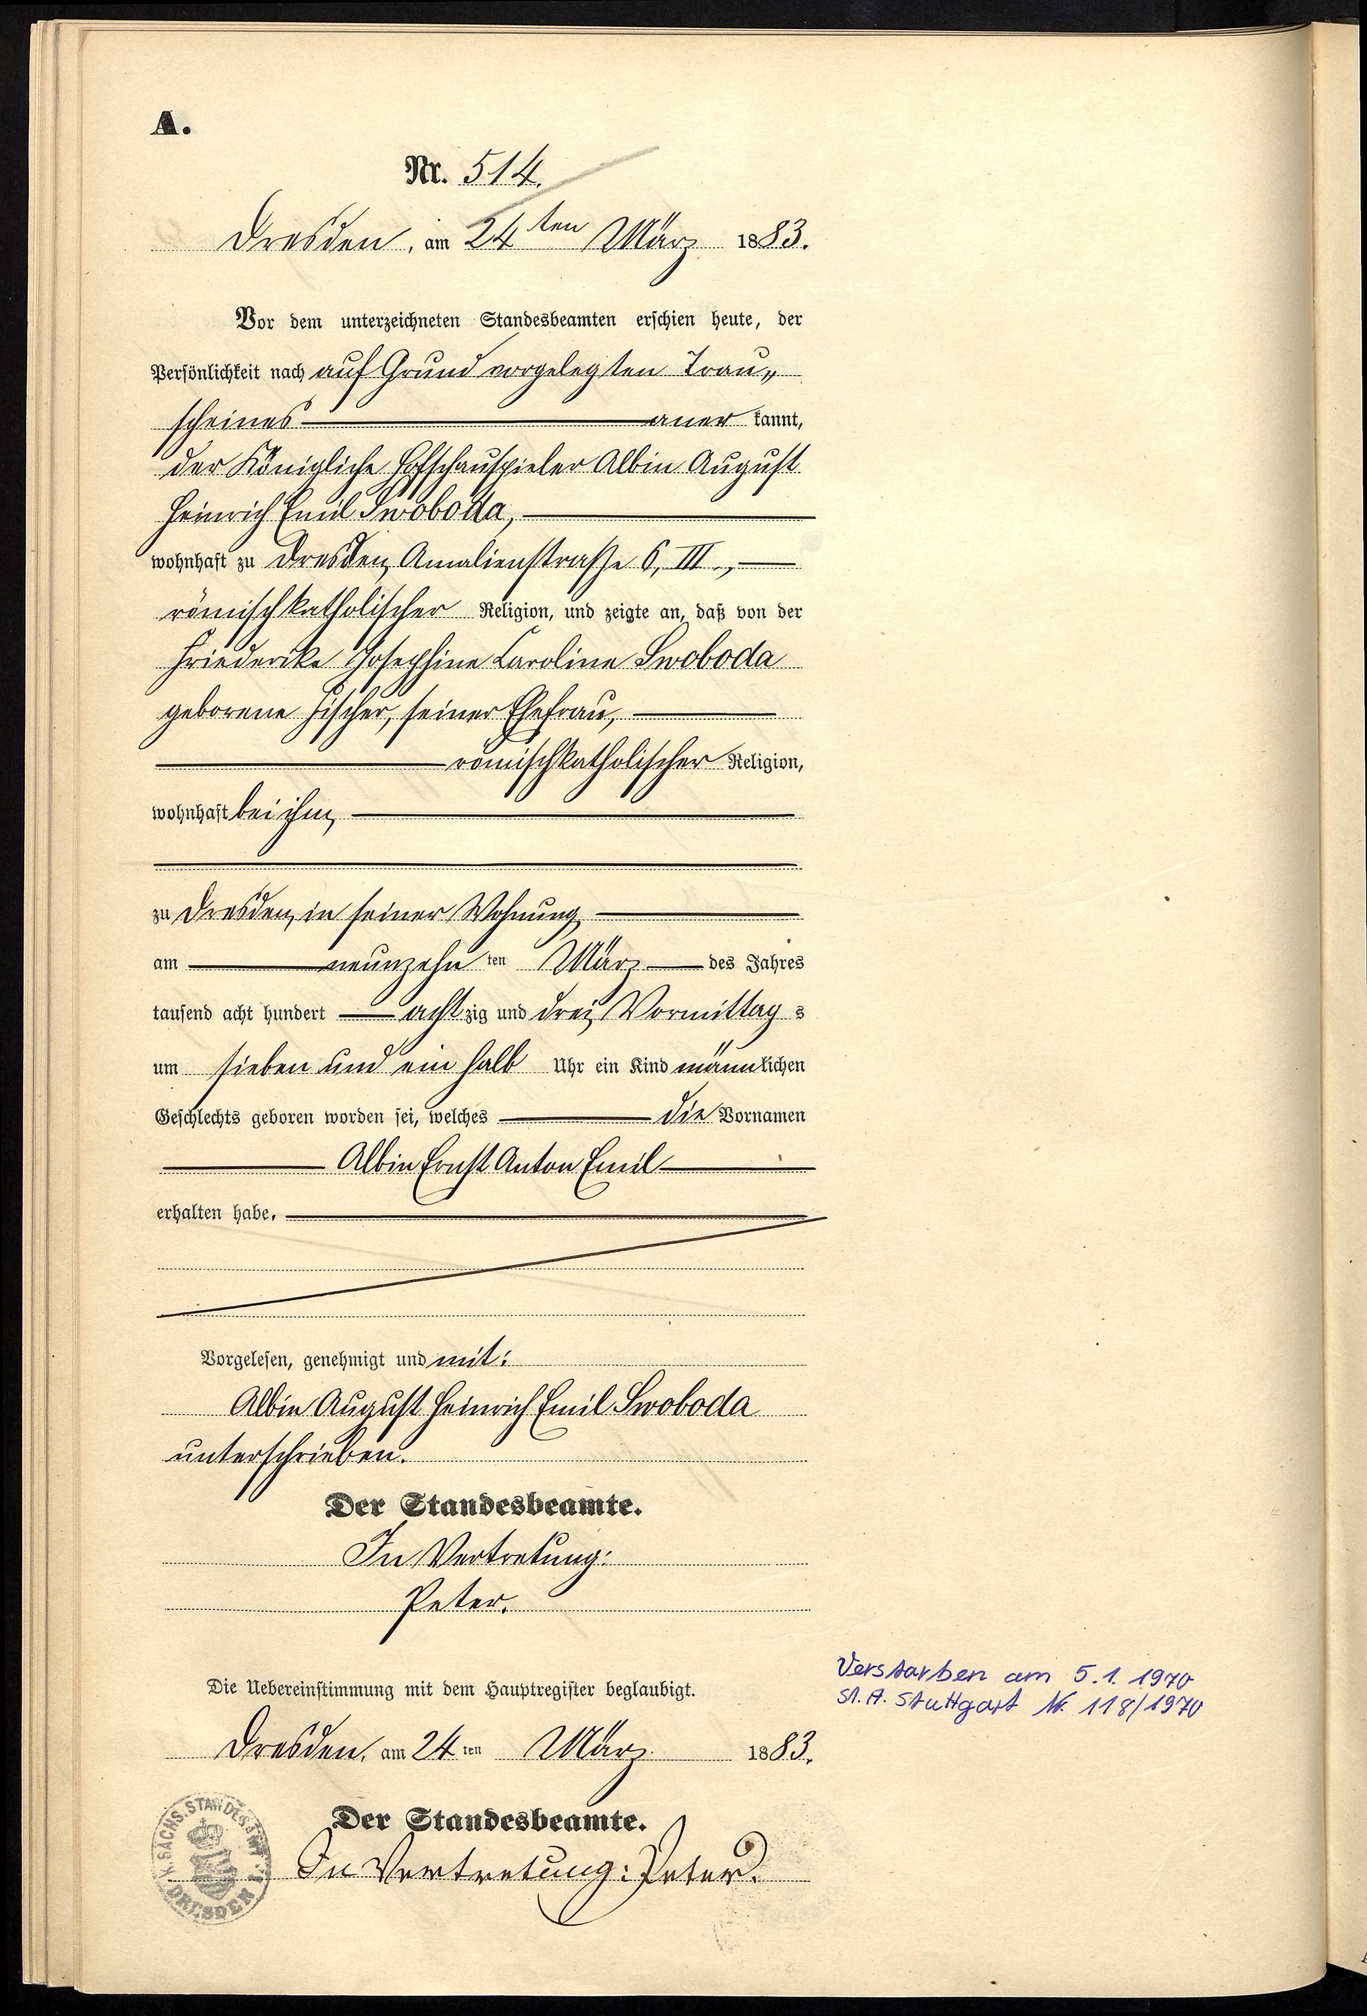 A.
Nr. 514.
Dresden, am 24ten März 1883.
Vor dem unterzeichneten Standesbeamten erschien heute, der
Persönlichkeit nach auf Grund vorgelegten Trau„
scheines aner kannt,
der Königliche Hofschauspieler Albin August
Heinrich Emil Swoboda,
wohnhaft zu Dresden, Amalienstraße 6, III.,
römischkatholischer Religion, und zeigte an, daß von der
Friederike Josephine Caroline Swoboda
geborene Fischer, seiner Ehefrau,
römischkatholischer Religion,
wohnhaft bei ihm,
zu Dresden, in seiner Wohnung
am neunzehn ten März des Jahres
tausend acht hundert acht zig und drei, Vormittag s
um sieben und ein halb Uhr ein Kind männ lichen
Geschlechts geboren worden sei, welches die Vornamen
Albin Ernst Anton Emil
erhalten habe.
Vorgelesen, genehmigt und mit:
Albin August Heinrich Emil Swoboda
unterschrieben.
Der Standesbeamte.
In Vertretung:
Peter.
Die Uebereinstimmung mit dem Hauptregister beglaubigt.
Verstorben am 5.1.1970
St. A. Stuttgart Nr. 118/1970
Dresden, am 24 ten März 1883.
Der Standesbeamte.
In Vertretung: Peter.
K. SÄCHS. STANDESAMT I. DRESDEN